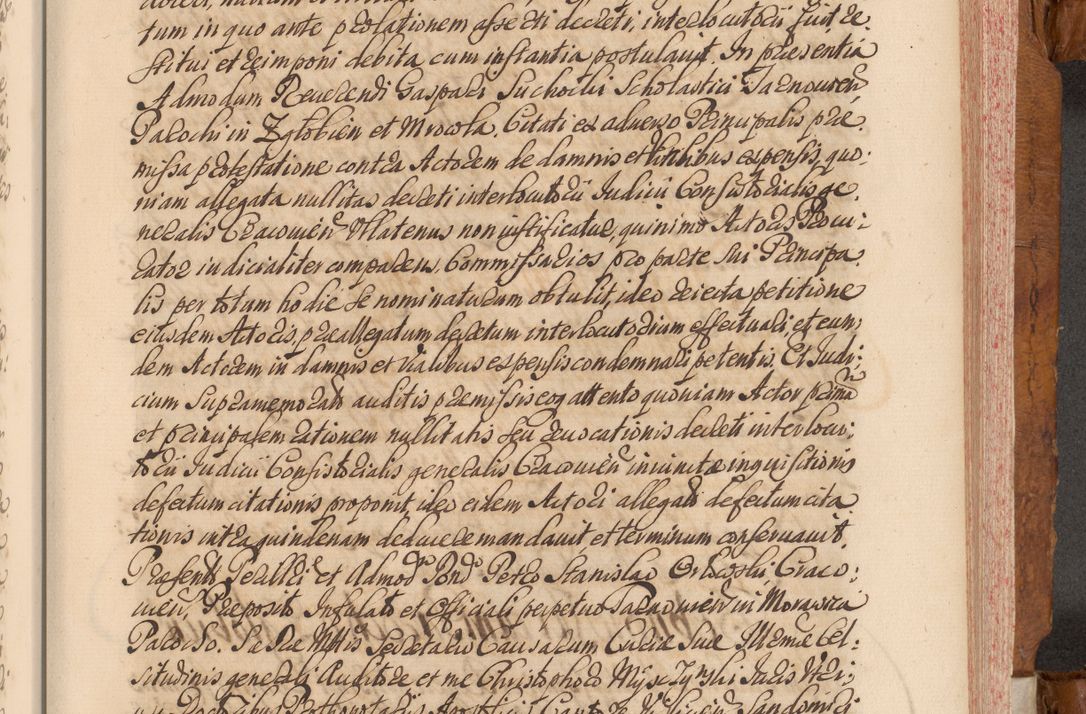 tum in quo ante prolationem asserti decreti, interlocutorii fuit re
stitus et reimponi debita cum instantia postulavit. In praesentia
Admodum Reverendi Gaspari Suchocki Scholastici Jarnovien
Parochi in Zglobien et Mrowla. Citati ex adverso Principalis prae
missa protestatione contra Actorem de damnis et litis expensis, quo,
niam allegata nullitas decreti interlocutorii Judicii Consistorialis ge
neralis Cracovien ullatenus non justificatur, quinimo Actoris Procu:
rator judicialiter comparens, Commissarios pro parte sui Principa
lis per totum hodie se nominaturum obtulit, ideo reiecta petitione
eiusdem Actoris, praeallegatum decretum interlocutorium effectuari, et eun,
dem Actorem in damnis et vialibus expensis condemnari petentis. Et Judi:
cium supramemorato auditis praemissis eoq attento quoniam Actor primam
et principalem rationem nullitatis seu revocationis decreti interlocu:
torii Judicii Consistorialis generalis Cracovien in inquisitionis
defectum citationis proponit, ideo eidem Actori allegati defectum cita
tionis intra quindenam deducere mandavit et terminum conservavit.
Praesent Perillri et Admod Rnd Petro Stanislao Orlowski Craco:
vien, Praeposito Infulato et Officiali perpetuo in Morawica
Parocho. Sacrae Secretario Causarum Curiae Suae Cel:
situdinis generali Auditore et me Christophoro Juris Utri:
Doctoribus Prothonotariis Sandomiri